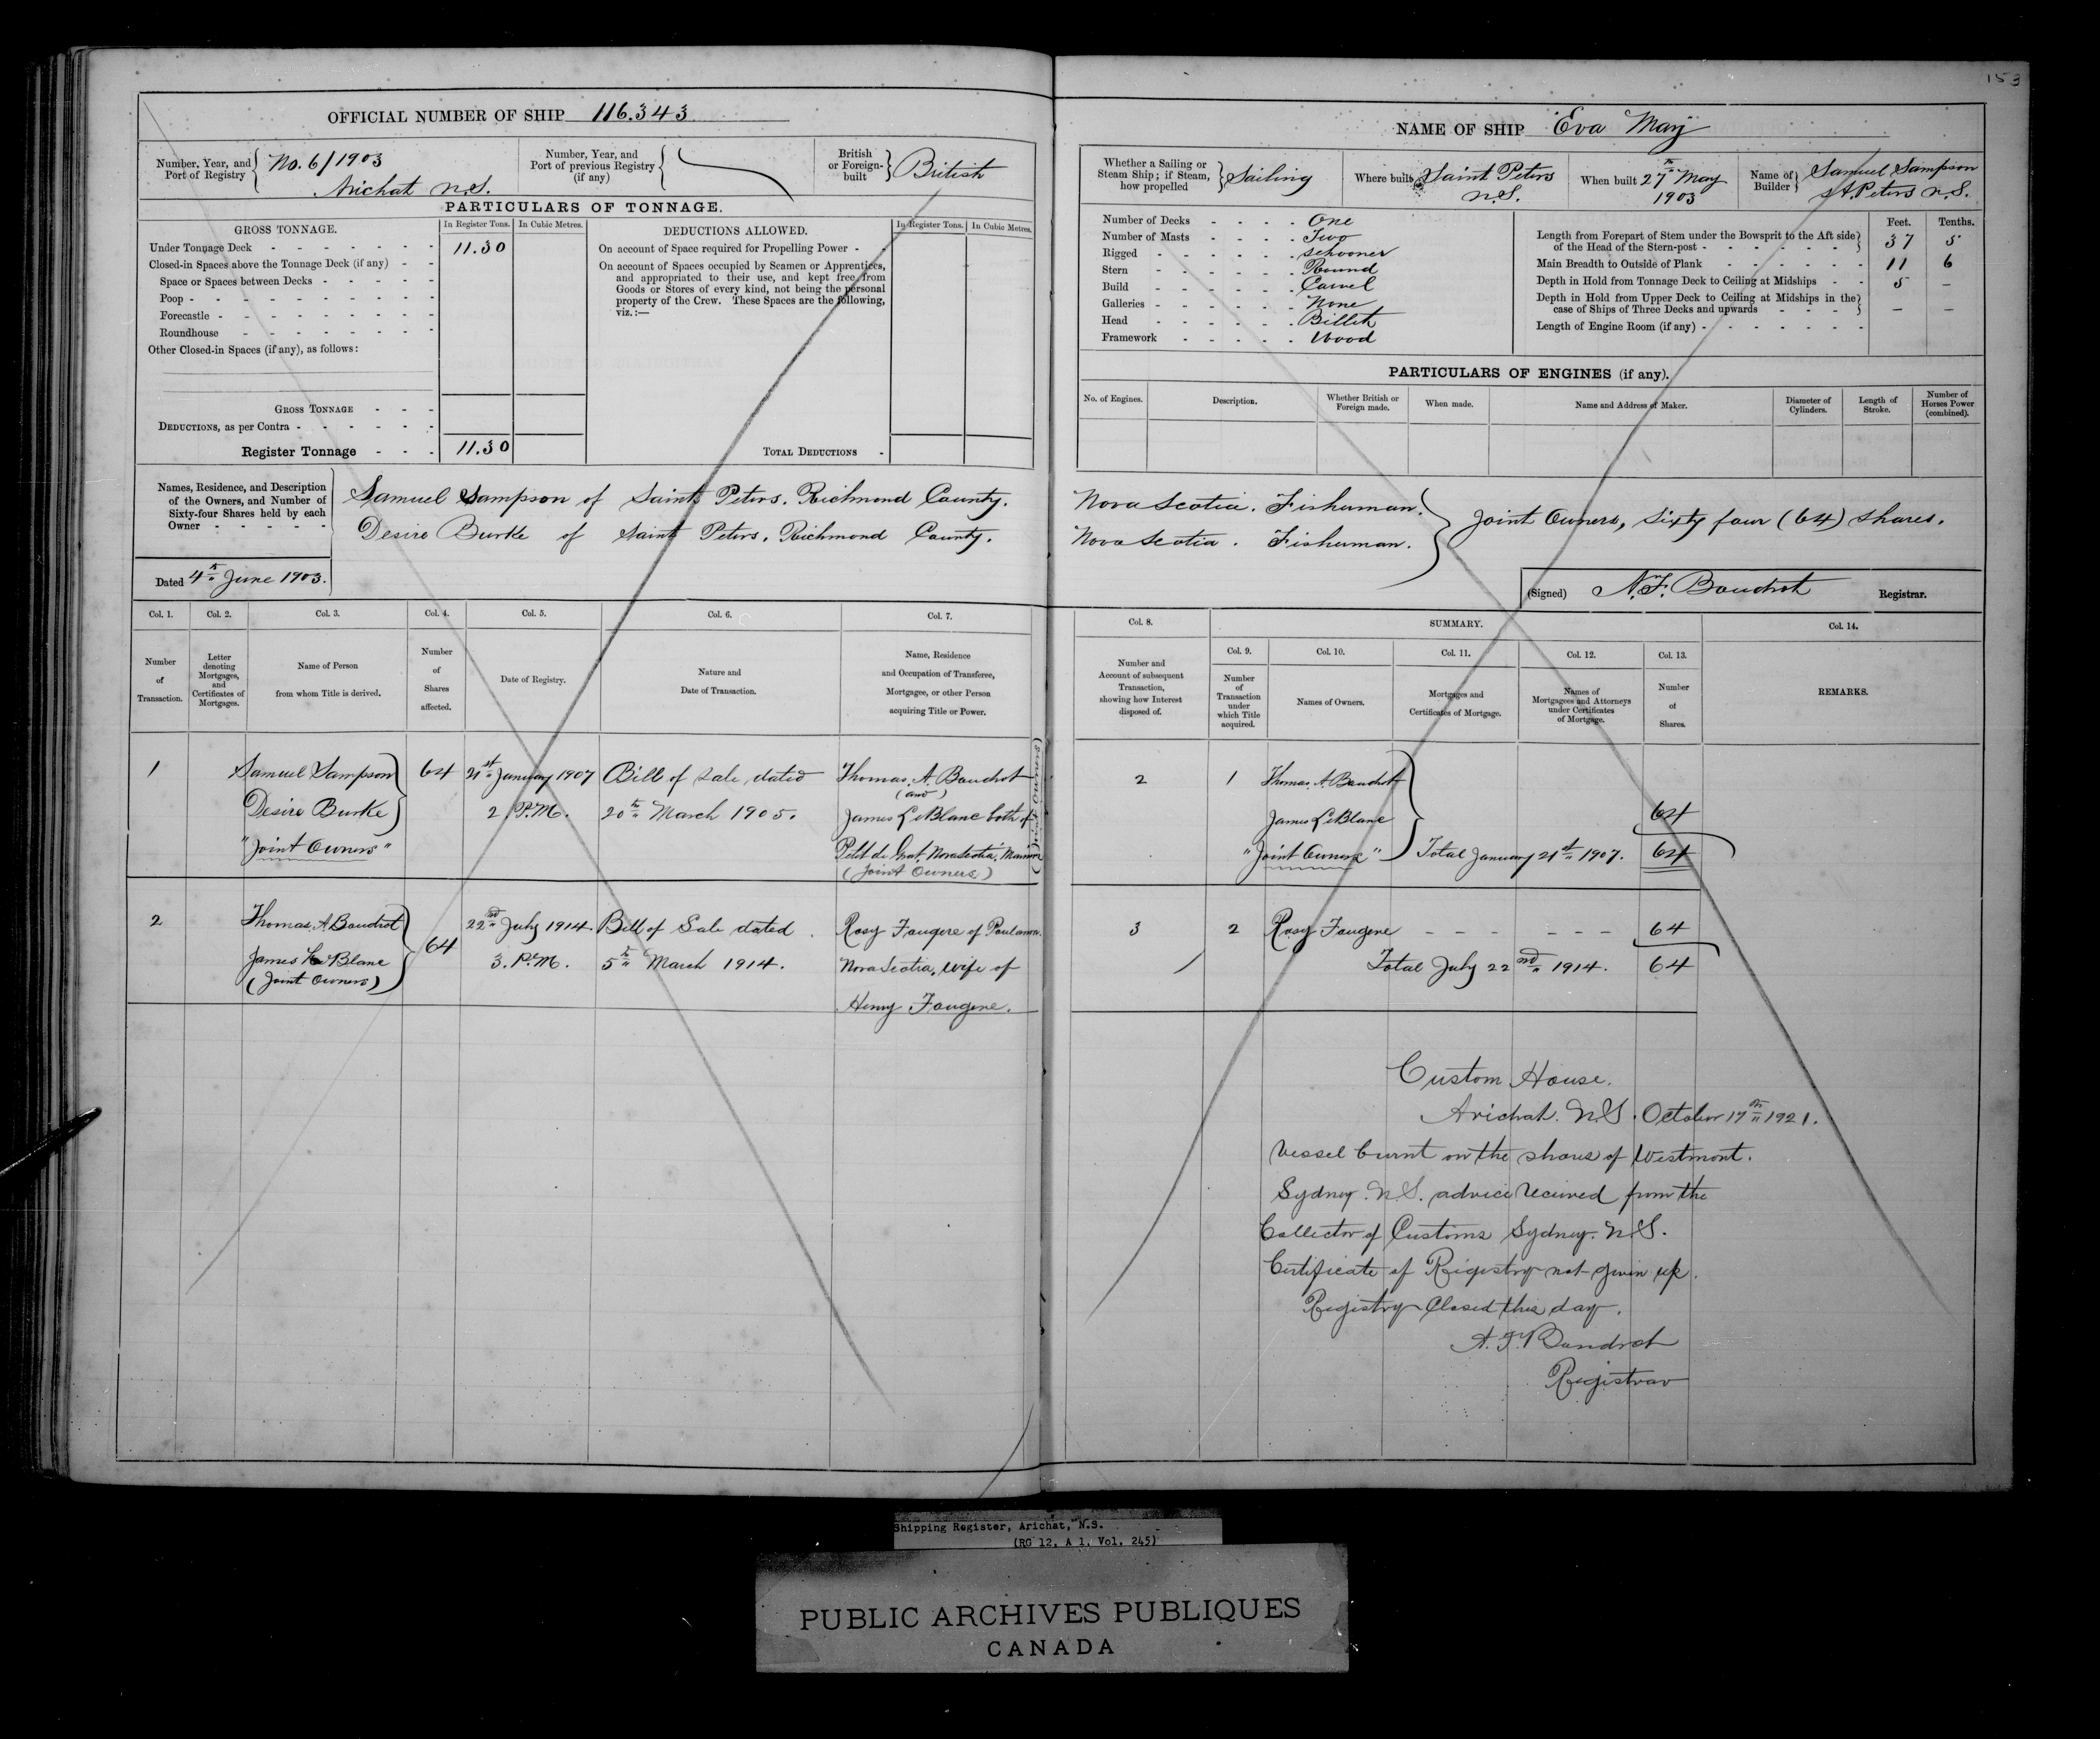 153
OFFICIAL NUMBER OF SHIP 116.343
Number, Year, and Port of Registry No. 6/1903
Arichat N.S.
Number, Year, and Port of previous Registry (if any)
British or Foreign-built British
PARTICULARS OF TONNAGE.
GROSS TONNAGE. In Register Tons. In Cubic Metres.
Under Tonnage Deck 11.30
Closed-in Spaces above the Tonnage Deck (if any)
Space or Spaces between Decks
Poop
Forecastle
Roundhouse
Other Closed-in Spaces (if any), as follows:
GROSS TONNAGE
DEDUCTIONS, as per Contra
Register Tonnage 11.30
DEDUCTIONS ALLOWED. In Register Tons. In Cubic Metres.
On account of Space required for Propelling Power
On account of Spaces occupied by Seamen or Apprentices,
and appropriated to their use, and kept free from
Goods or Stores of every kind, not being the personal
property of the Crew. These Spaces are the following,
viz.:—
TOTAL DEDUCTIONS
NAME OF SHIP Eva May
Whether a Sailing or Steam Ship; if Steam, how propelled Sailing
Where built Saint Peters N.S.
When built 27th May 1903
Name of Builder Samuel Sampson St. Peters N.S.
Number of Decks One
Number of Masts Two
Rigged Schooner
Stern Round
Build Carvel
Galleries None
Head Billet
Framework Wood
Feet. Tenths.
Length from Forepart of Stem under the Bowsprit to the Aft side of the Head of the Stern-post 37 5
Main Breadth to Outside of Plank 11 6
Depth in Hold from Tonnage Deck to Ceiling at Midships 5 —
Depth in Hold from Upper Deck to Ceiling at Midships in the case of Ships of Three Decks and upwards — —
Length of Engine Room (if any)
PARTICULARS OF ENGINES (if any).
No. of Engines. Description. Whether British or Foreign made. When made. Name and Address of Maker. Diameter of Cylinders. Length of Stroke. Number of Horses Power (combined).
Names, Residence, and Description of the Owners, and Number of Sixty-four Shares held by each Owner
Samuel Sampson of Saint Peters. Richmond County. Nova Scotia. Fisherman.
Desire Burke of Saint Peters, Richmond County. Nova Scotia. Fisherman.
Joint Owners, Sixty four (64) shares.
Dated 4th June 1903.
(Signed) N.F. Boudrot Registrar.
Col. 1. Col. 2. Col. 3. Col. 4. Col. 5. Col. 6. Col. 7.
Number of Transaction.
Letter denoting Mortgages, and Certificates of Mortgages.
Name of Person from whom Title is derived.
Number of Shares affected.
Date of Registry.
Nature and Date of Transaction.
Name, Residence and Occupation of Transferee, Mortgagee, or other Person acquiring Title or Power.
Col. 8. SUMMARY. Col. 14.
Col. 9. Col. 10. Col. 11. Col. 12. Col. 13.
Number and Account of subsequent Transaction, showing how Interest disposed of.
Number of Transaction under which Title acquired.
Names of Owners.
Mortgages and Certificates of Mortgage.
Names of Mortgagees and Attorneys under Certificates of Mortgage.
Number of Shares.
REMARKS.
1 Samuel Sampson 64 21st January 1907 Bill of Sale dated Thomas. A. Boudrot
(and)
Desire Burke 2 P.M. 20th March 1905. James LeBlanc both of
"Joint Owners" Petit de Grat, Nova Scotia,
(Joint Owners)
(Joint Owners)
2 1 Thomas. A. Boudrot
James LeBlanc 64
"Joint Owners" Total January 21st 1907. 64
2 Thomas. A. Boudrot 64 22nd July 1914 Bill of Sale dated Rosy Fougere of
James LeBlanc 3. P.M. 5th March 1914. Nova Scotia, wife of
(Joint Owners)
Henry Fougere.
3 2 Rosy Fougere 64
Total July 22nd 1914. 64
Custom House.
Arichat. N.S. October 17th 1921.
Vessel burnt on the shores of Westmont.
Sydney. N.S. advice received from the
Collector of Customs Sydney. N.S.
Certificate of Registry not given up.
Registry Closed this day.
Boudrot
Registrar
Shipping Register, Arichat, N.S.
(RG 12, A 1, Vol. 245)
PUBLIC ARCHIVES PUBLIQUES
CANADA